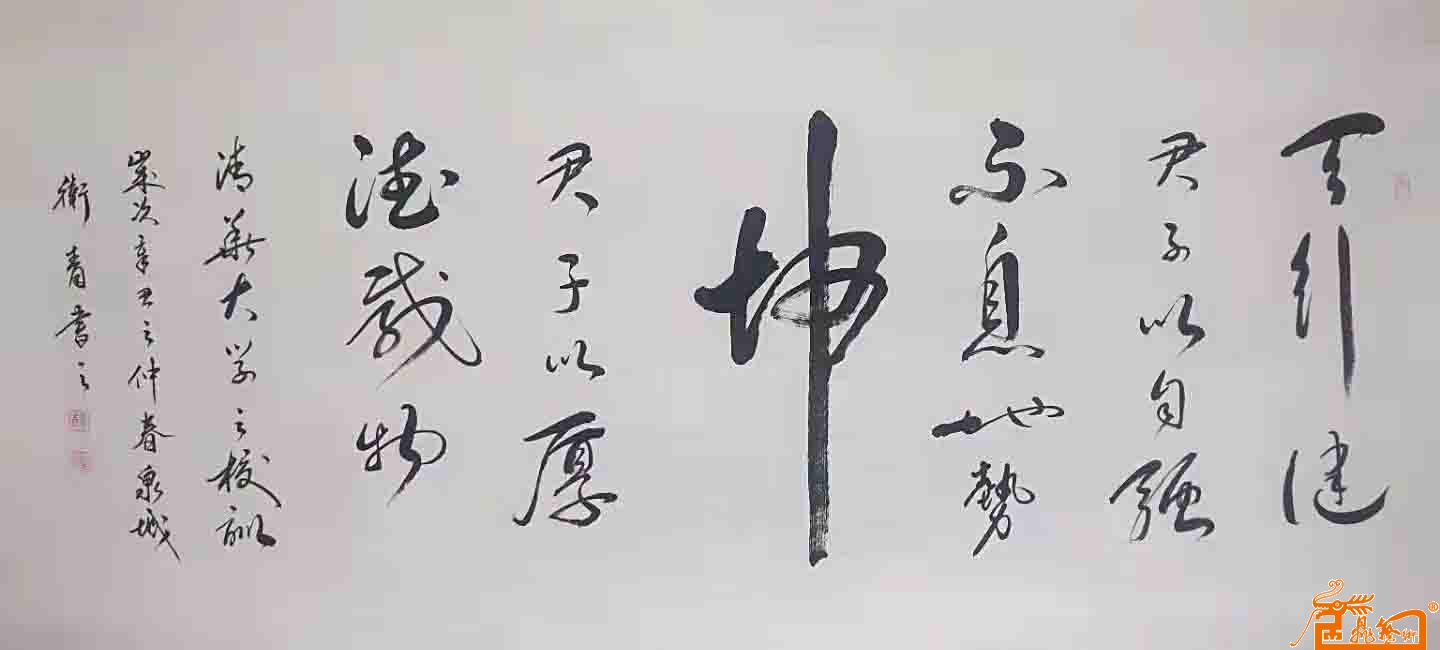 天行健
君子以自强
不息地势
坤
君子以厚
德载物
清华大学之校训
岁次辛丑之仲春泉城
卫青书之